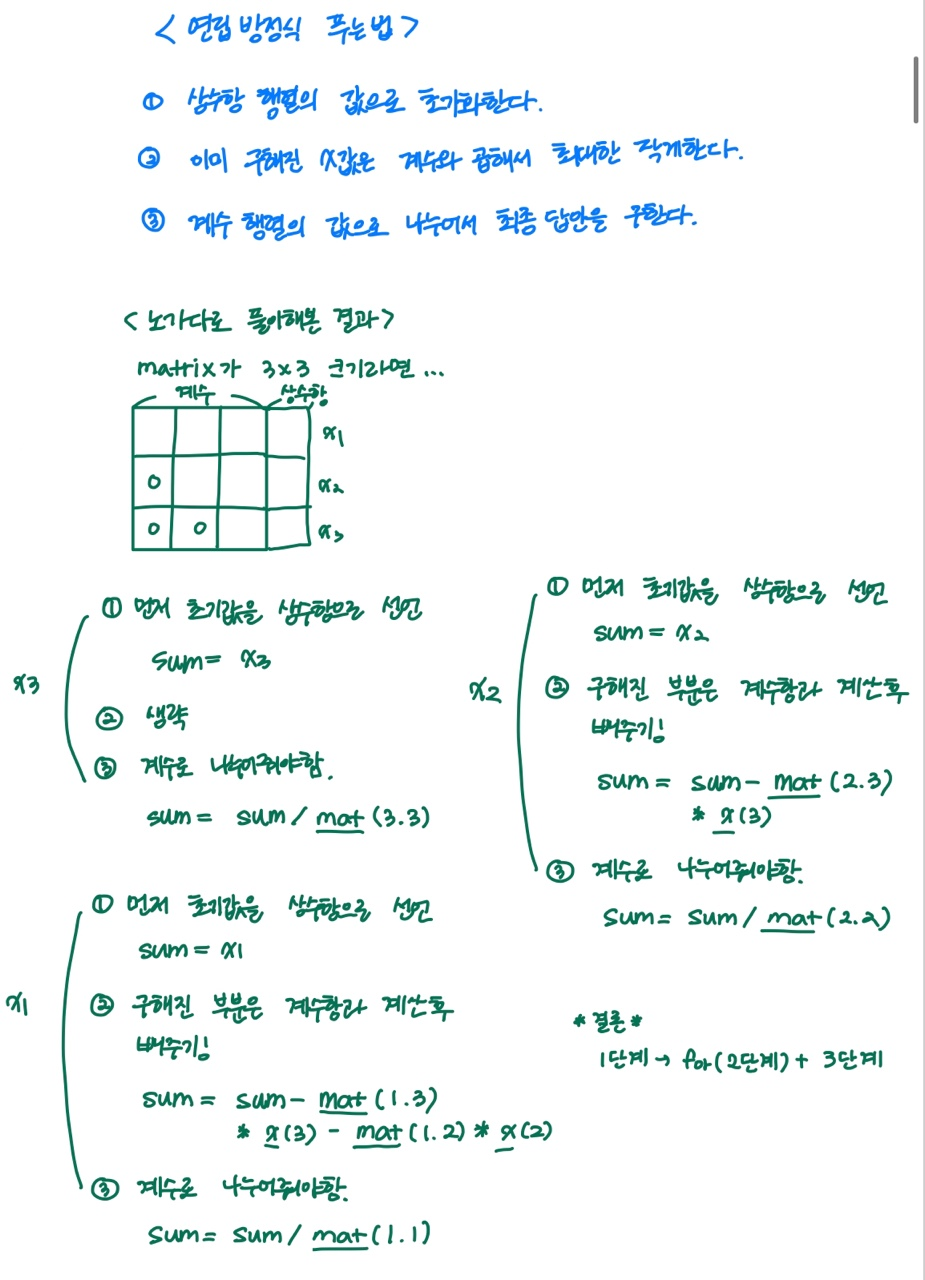 < 연립방정식 푸는법 >
① 상수항 행렬의 값으로 초기화한다.
② 이미 구해진 x값은 계수와 곱해서 최대한 작게한다.
③ 계수 행렬의 값으로 나누어서 최종 답안을 구한다.
< 노가다로 풀이해본 결과 >
matrix가 3x3 크기라면 ...
계수 상수항
x1
0 x2
0 0 x3
x3
① 먼저 초기값을 상수항으로 선언
sum = x3
② 생략
③ 계수로 나누어줘야함.
sum = sum / mat (3.3)
x2
① 먼저 초기값을 상수항으로 선언
sum = x2
② 구해진 부분은 계수항과 계산후
빼주기!
sum = sum - mat (2.3)
* x (3)
③ 계수로 나누어줘야함.
sum = sum / mat (2.2)
x1
① 먼저 초기값을 상수항으로 선언
sum = x1
② 구해진 부분은 계수항과 계산후
빼주기!
sum = sum - mat (1.3)
* x (3) - mat (1.2) * x (2)
③ 계수로 나누어줘야함.
sum = sum / mat (1.1)
* 결론 *
1단계 → for (2단계) + 3단계